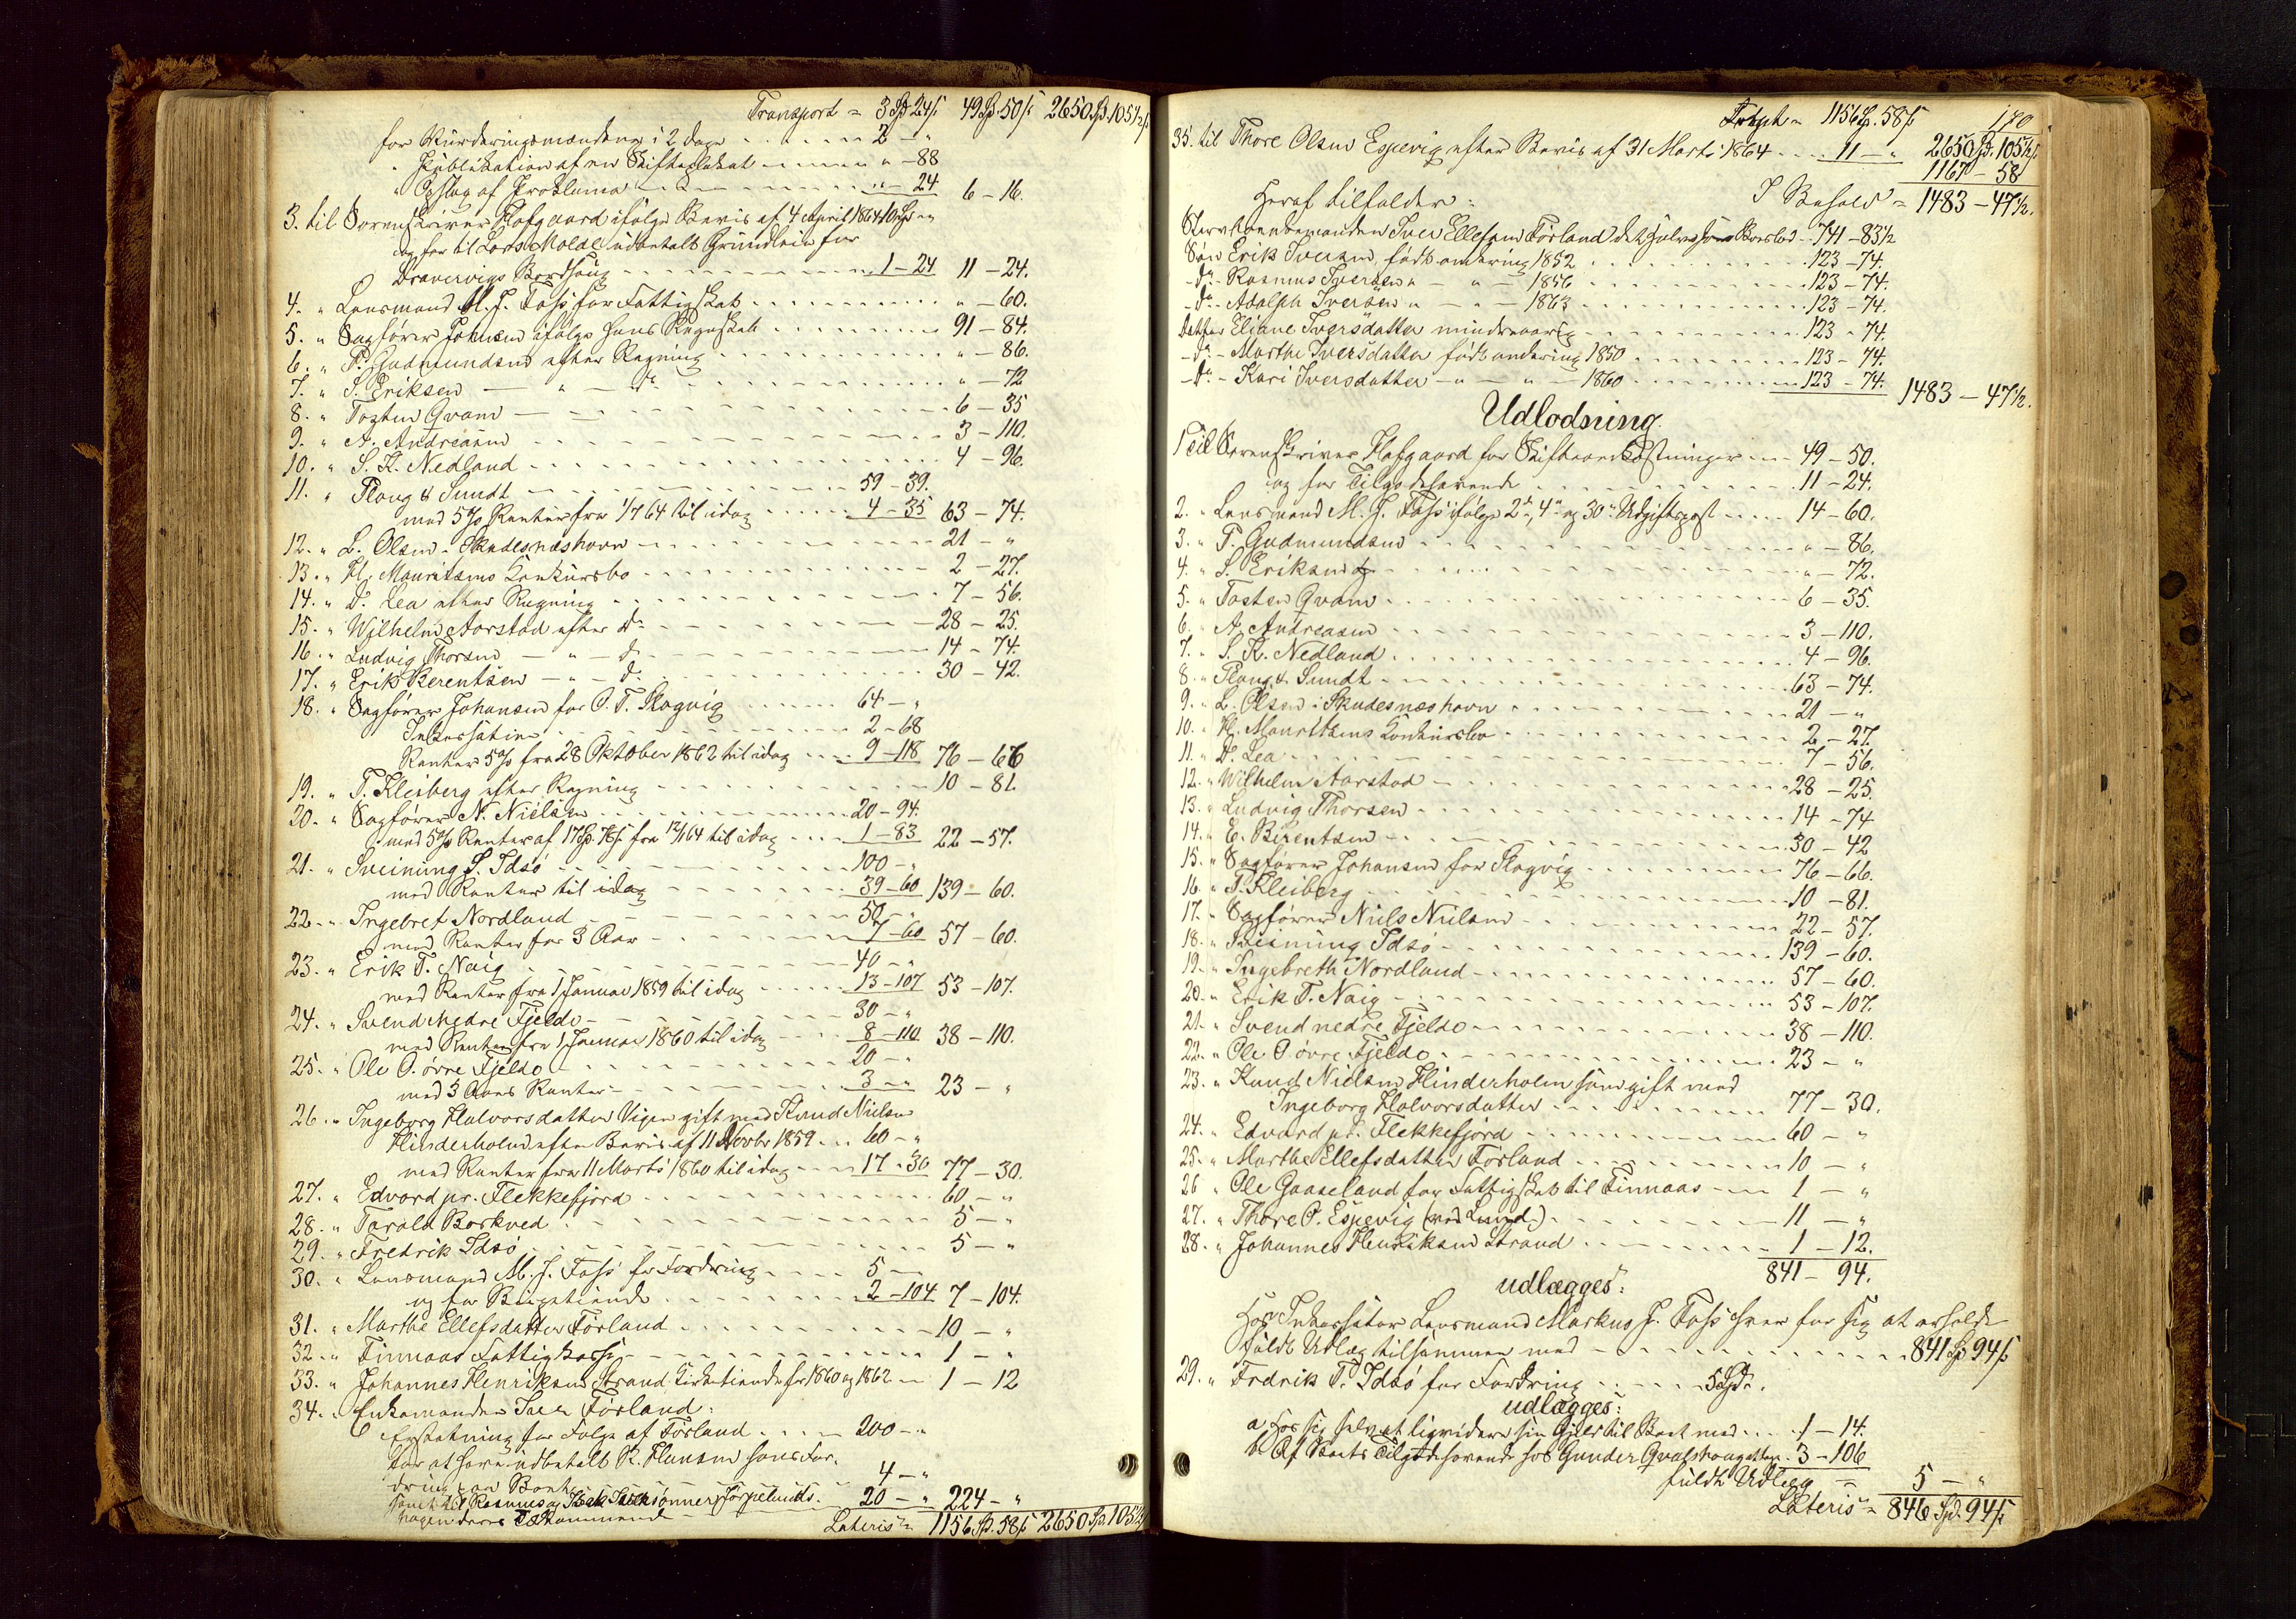 Transport = 3 Sp 24 ß 49 Sp. 50 ß 2650 Sp. 105½ ß
for Vurderingsmændene i 2 Dage 2 - "
" Publikation af en Skifteplakat " - 88
" Opslag af Proklama " - 24 6 - 16.
3. til Sorenskriver Hafgaard ifølge Bevis af 4 April 1864 10 Sp "
og for til Lars Molde udbetalt Grundleie for
Bordsaug 1 - 24 11 - 24.
4. " Lensmand M. J. Foss for Fattigskat " - 60.
5. " Sagfører Johnsen ifølge hans Regnskab 91 - 84.
6. " P. Gudmundsen efter Regning " - 86.
7. " S. Eriksen - " - do " - 72
8. " Tosten Qvam 6 - 35
9. " A. Andreasen 3 - 110.
10. " S. K. Nedland 4 - 96.
11. " Ploug & Sundt 59 - 39.
med 5 % Renter fra 1/7 64 til idag 4 - 35 63 - 74.
12. " L. Olsen i Skudesnæshavn 21 - "
13. " Hl. Mauritzens Konkursbo 2 - 27.
14. " D. Lea efter Regning 7 - 56.
15. " Wilhelm Aarstad efter do 28 - 25.
16. " Ludvig Thorsen - " - do 14 - 74.
17. " Erik Berentsen - " - do 30 - 42.
18. " Sagfører Johansen for O. T. Slogvig 64 - "
2 - 68
Renter 5 % fra 28 Oktober 1862 til idag 9 - 118 76 - 66
19. " T. Kleiberg efter Regning 10 - 81.
20. " Sagfører N. Nielsen 20 - 94.
med 5 % Renter af 17 Sp. fra 12/1 64 til idag 1 - 83 22 - 57.
21. " Sveinung S. Idsø 100 - "
med Renter til idag 39 - 60 139 - 60.
22. " Ingebret Nordland 50 - "
med Renter for 3 Aar 7 - 60 57 - 60.
23. " Erik T. Naig 40 - "
med Renter fra 1 Januar 1859 til idag 13 - 107 53 - 107.
24. " Svend nedre Fjeldo 30 - "
med Renter fra 1 Januar 1860 til idag 8 - 110 38 - 110.
25. " Ole O. øvre Fjeldo 20 - "
med 3 Aars Renter 3 - " 23 - "
26. " Ingeborg Halvorsdatter Vigen gift med Knud Nielsen
Hinderholm efter Bevis af 11 Novbr 1859 60 - "
med Renter fra 11 Marts 1860 til idag 17 - 30 77 - 30.
27. " Edvard pr. Flekkefjord 60 - "
28. " Torald Borkved 5 - "
29. " Fredrik Idsø 5 - "
30. " Lensmand M. J. Foss for Fordring 5 -
og for Bispetiende 2 - 104 7 - 104.
31. " Marthe Ellefsdatter Førland 10 - "
32. " Finnaas Fattigkasse 1 - "
33. " Johannes Henriksen Strand Kirketiende for 1860 og 1862 1 - 12
34. " Enkemanden Iver Førland:
Erstatning for Salge af Førland 200 - "
for at have udbetalt R. Hansen hans For-
dring paa Boet 4 - "
20 - " 224 - "
Lateris = 1156 Sp. 58 ß 2650 Sp. 105½
Trspt = 1156 Sp. 58 ß 170
35. til Thore Olsen Espevig efter Bevis af 31 Marts 1864 11 - " 2650 Sp. 105½ ß
1167 - 58
I Behold = 1483 - 47½.
Heraf tilfalder:
Stervboenkemanden Iver Ellefsen Førland det halve Boeslod 741 - 83½
Søn Erik Iversen, født omkring 1852 123 - 74.
- do - Rasmus Iversen " - " - 1856 123 - 74.
- do - Adolph Iversen " - " - 1863 123 - 74.
Datter Eliane Iversdatter mindreaarig 123 - 74.
- do - Marthe Iversdatter født omkring 1850 123 - 74.
- do - Kari Iversdatter - " - " - 1860 123 - 74. 1483 - 47½.
Udlodning.
1 til Sorenskriver Hafgaard for Skifteomkostninger 49 - 50.
og for Tilgodehavende 11 - 24.
2. " Lensmand M. J. Foss ifølge 2de, 4de og 30te Udgiftspost 14 - 60.
3. " P. Gudmundsen " - 86.
4. " S. Eriksen " - 72.
5. " Tosten Qvam 6 - 35.
6. " A. Andreasen 3 - 110.
7. " S. K. Nedland 4 - 96.
8. " Ploug & Sundt 63 - 74.
9. " L. Olsen i Skudesnæshavn 21 - "
10. " Hl. Mauritzens Konkursbo 2 - 27.
11. " D. Lea 7 - 56.
12. " Wilhelm Aarstad 28 - 25.
13. " Ludvig Thorsen 14 - 74
14. " E. Berentsen 30 - 42
15. " Sagfører Johansen for Slogvig 76 - 66.
16. " T. Kleiberg 10 - 81.
17. " Sagfører Niels Nielsen 22 - 57.
18. " Sveinung Idsø 139 - 60.
19. " Ingebreth Nordland 57 - 60.
20. " Erik T. Naig 53 - 107.
21. " Svend nedre Fjeldo 38 - 110.
22. " Ole O. øvre Fjeldo 23 - "
23. " Knud Nielsen Hinderholm som gift med
Ingeborg Halvorsdatter 77 - 30.
24. " Edvard pr. Flekkefjord 60 - "
25. " Marthe Ellefsdatter Førland 10 - "
26 " Ole Gaaseland for Fattigskat til Finnaas 1 - "
27. " Thore O. Espevig (ved Lund.) 11 - "
28. " Johannes Henriksen Strand 1 - 12.
841 - 94.
udlægges:
Hos Inkassator Lensmand Markus J. Foss hver for sig at erholde
fuldt Udlæg tilsammen med 841 Sp 94 ß
29. " Fredrik T. Idsø for Fordring 5 Spd.
udlægges:
a Hos sig selv at liqvidere sin Gjeld til Boet med 1 - 14.
b. Af Boets Tilgodehavende hos Gunder 3 - 106
fuldt Udlæg = 5 - "
Lateris = 846 Sp. 94 ß